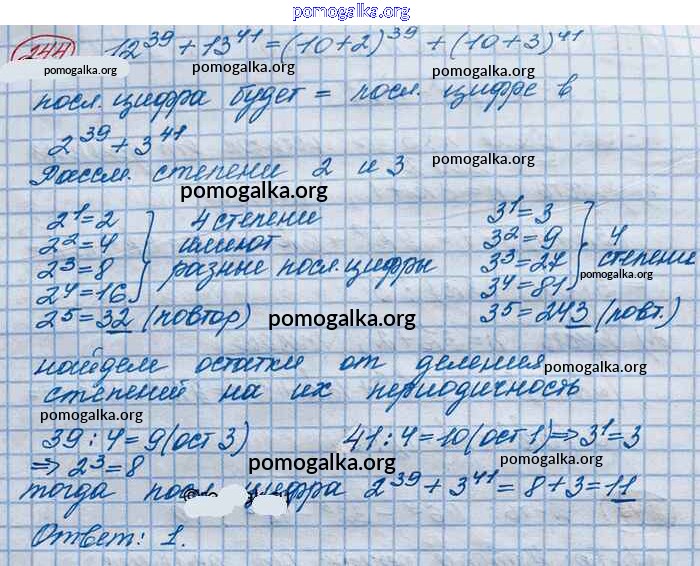 pomogalka.org
244 12^39 + 13^41 = (10+2)^39 + (10+3)^41
pomogalka.org pomogalka.org pomogalka.org
посл. цифра будет = посл. цифре в
2^39 + 3^41
pomogalka.org
Рассм. степени 2 и 3
pomogalka.org
2^1 = 2 4 степени 3^1 = 3
2^2 = 4 имеют 3^2 = 9 4
2^3 = 8 разные посл. цифры 3^3 = 27 степени
pomogalka.org
2^4 = 16 3^4 = 81
2^5 = 32 (повтор) pomogalka.org 3^5 = 243 (повт.)
найдем остатки от деления
pomogalka.org
степеней на их периодичность
pomogalka.org
39 : 4 = 9 (ост 3) 41 : 4 = 10 (ост 1) ⇒ 3^1 = 3
⇒ 2^3 = 8 pomogalka.org pomogalka.org
тогда посл. цифра 2^39 + 3^41 = 8 + 3 = 11
Ответ: 1.
pomogalka.org